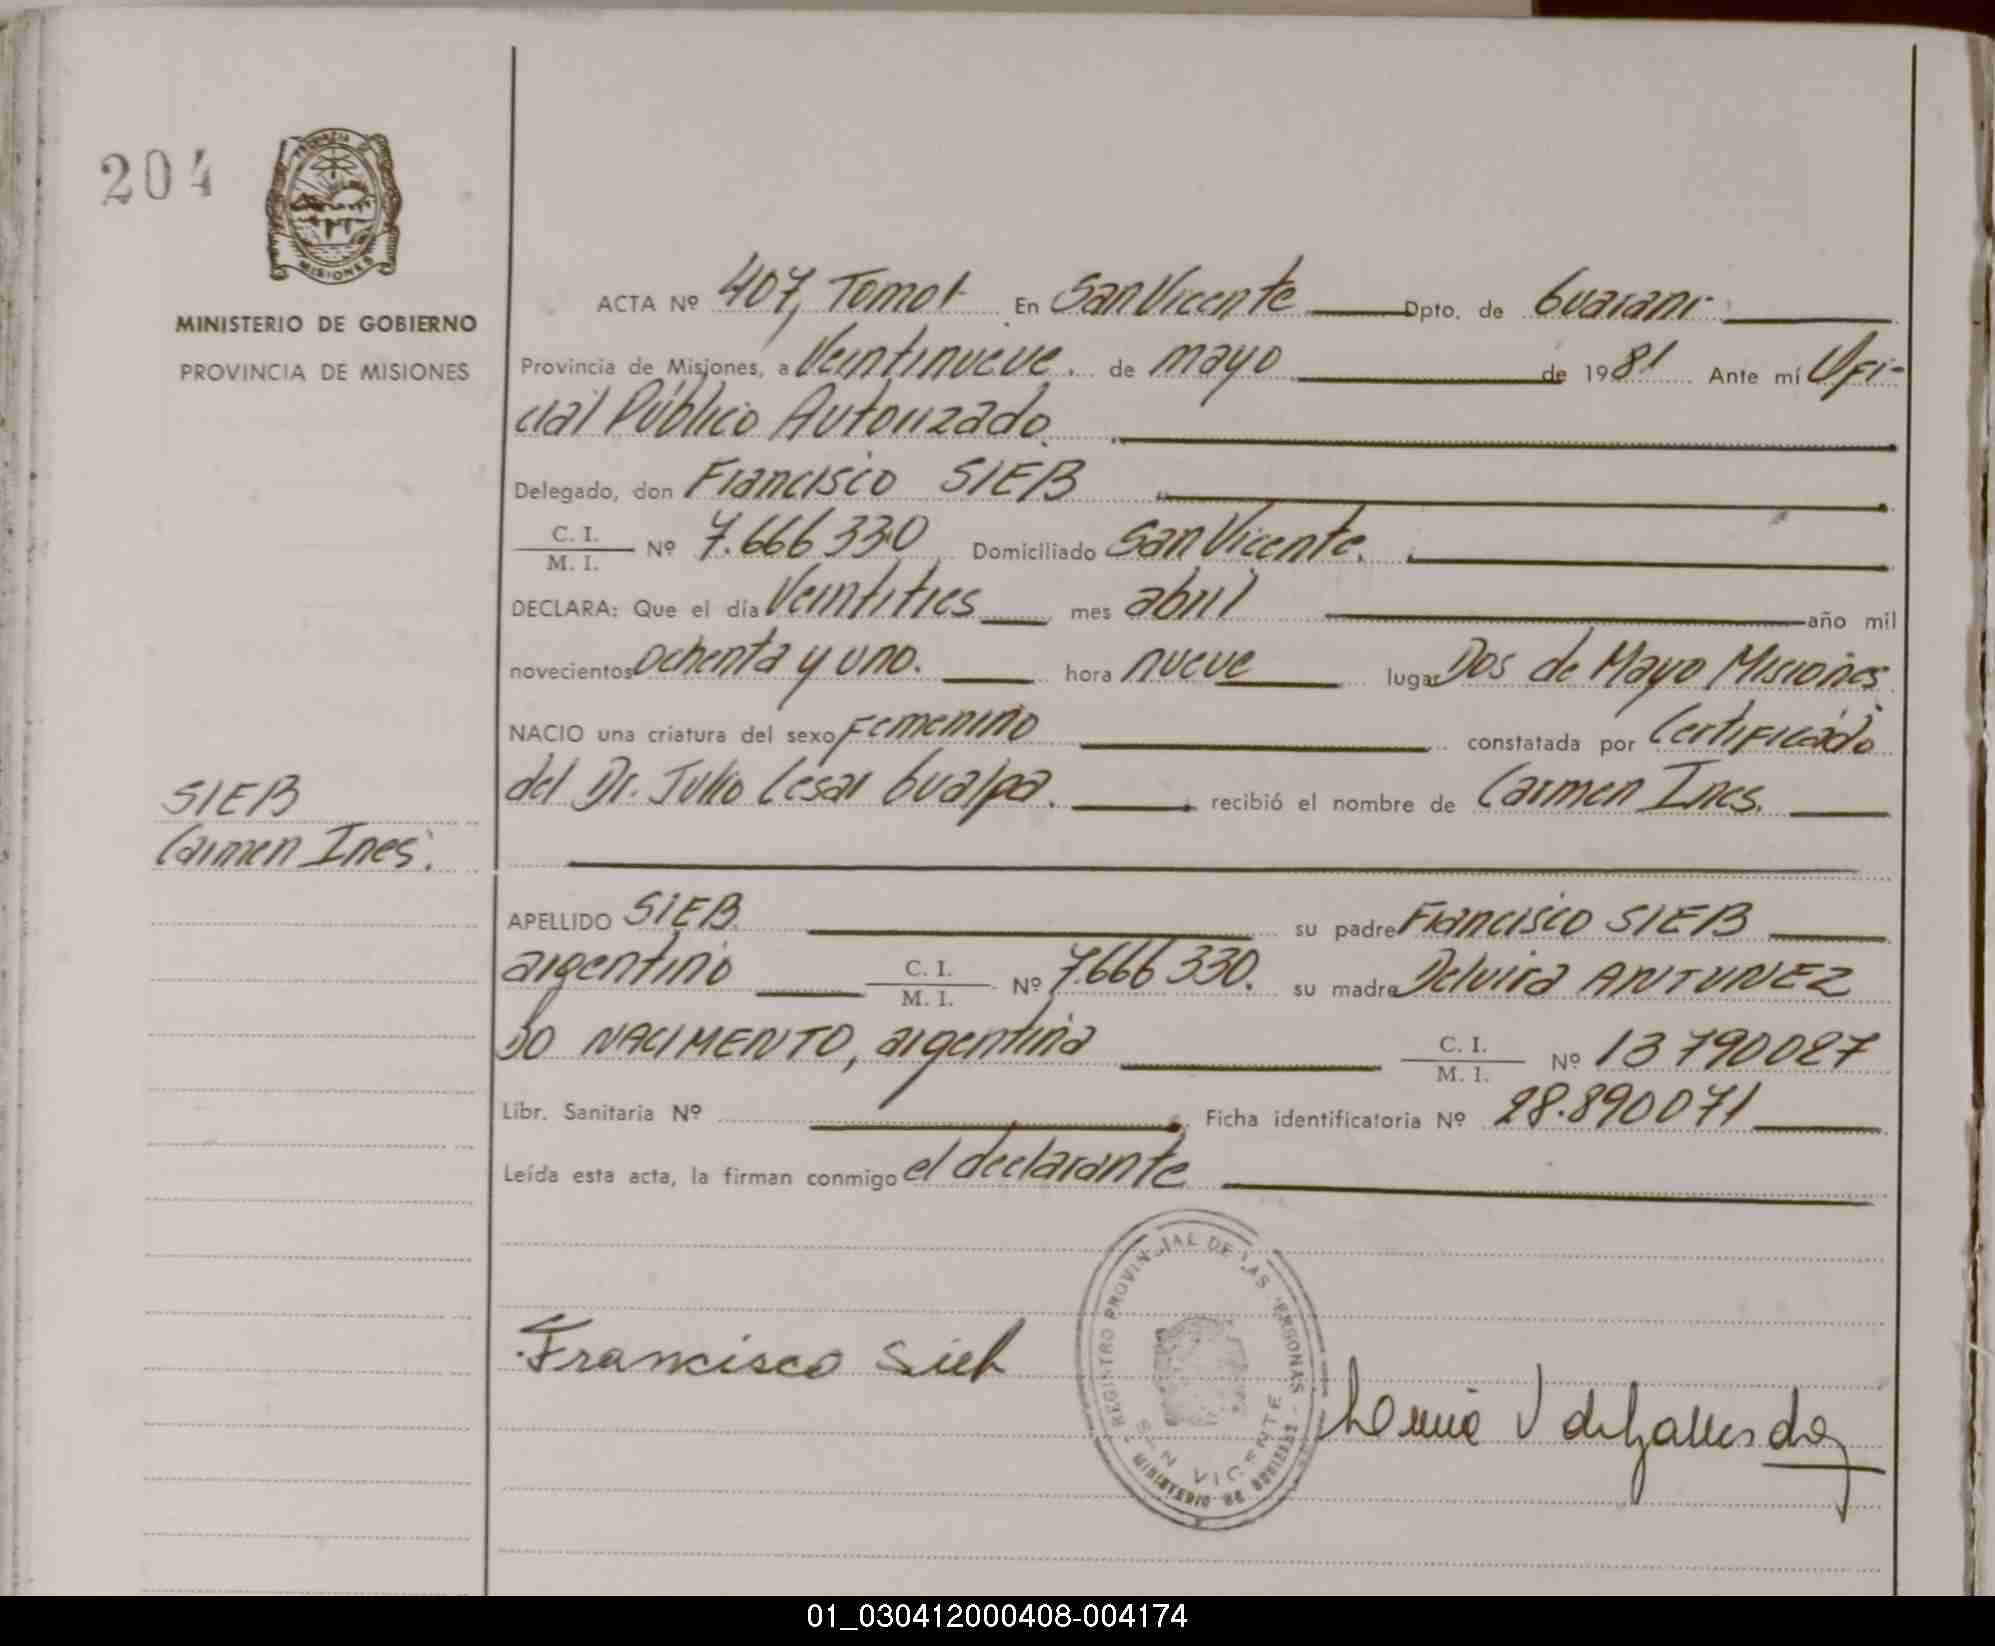 204
PROVINCIA DE
MISIONES
MINISTERIO DE GOBIERNO
PROVINCIA DE MISIONES
ACTA Nº 407, Tomo I En San Vicente Dpto. de Guarani
Provincia de Misiones, a Veintinueve. de mayo de 1981 Ante mí Ofi-
cial Público Autorizado.
Delegado, don Francisco SIEB
C. I.
M. I. Nº 7.666330 Domiciliado San Vicente.
DECLARA: Que el día Veintitres mes abril año mil
novecientos ochenta y uno. hora nueve lugar Dos de Mayo Misiones
NACIO una criatura del sexo Femenino constatada por Certificado
del Dr. Julio Cesar Gualpa. recibió el nombre de Carmen Ines.
SIEB
Carmen Ines.
APELLIDO SIEB su padre Francisco SIEB
argentino C. I. M. I. Nº 7.666330. su madre Delvira ANTUNEZ
DO NACIMENTO, argentina C. I. M. I. Nº 13790027
Libr. Sanitaria Nº Ficha identificatoria Nº 28.890071
Leída esta acta, la firman conmigo el declarante
REGISTRO PROVINCIAL DE LAS PERSONAS
SAN VICENTE
MINISTERIO DE GOBIERNO
Francisco Sieb
01_030412000408-004174